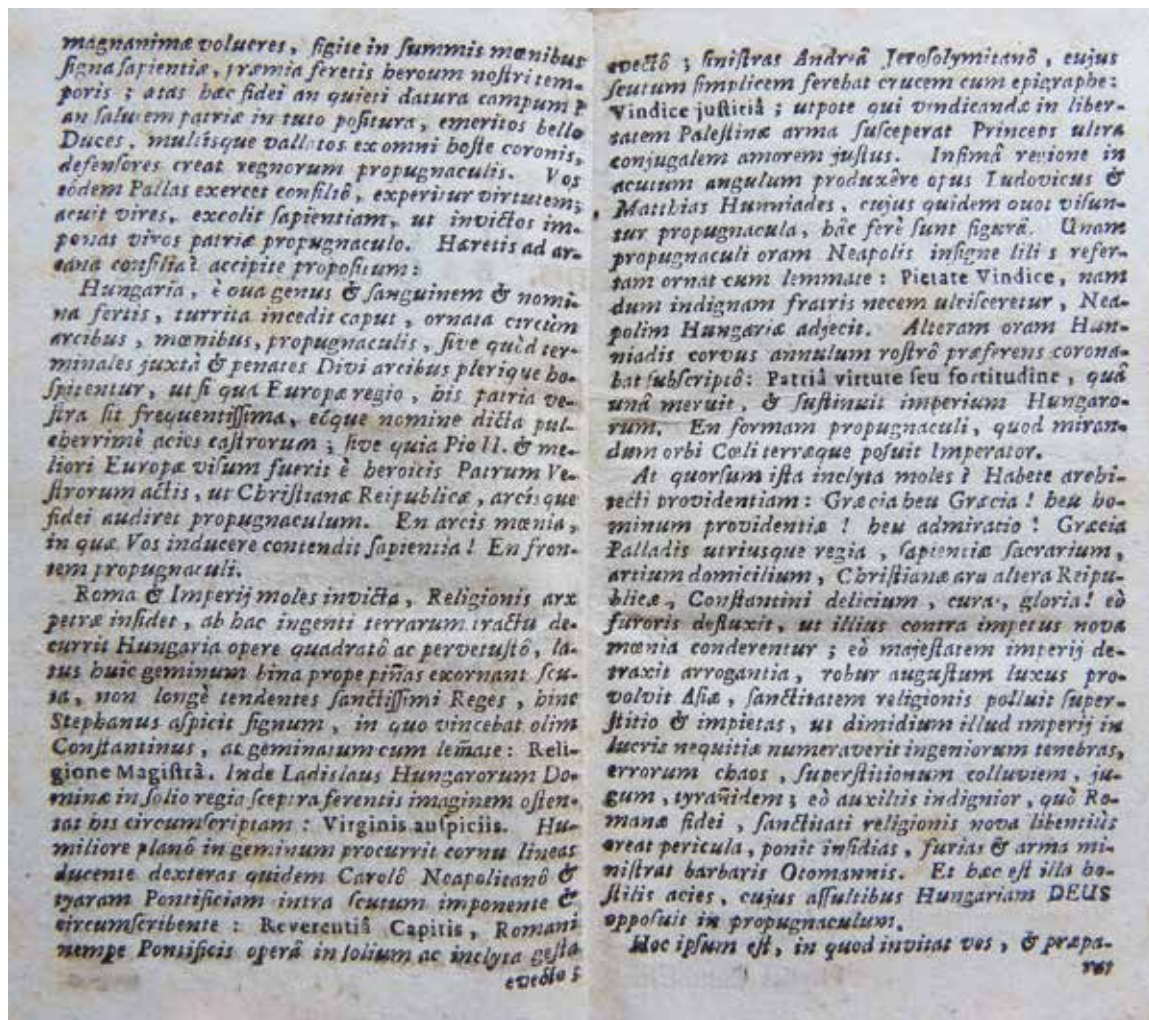 magnanimæ volucres, figite in ſummis mœnibus
ſigna ſapientiæ, præmia feretis heroum noſtri tem-
poris ; ætas hæc fidei an quieti datura campum ?
an ſalutem patriæ in tuto poſitura, emeritos bello
Duces, multiſque vallatos ex omni hoſte coronis,
defenſores creat regnorum propugnaculis. Vos
eôdem Pallas exerces conſiliô, experitur virtutem;
acuit vires, excolit ſapientiam, ut invictos im-
ponat viros patriæ propugnaculo. Hæretis ad ar-
cana conſilia? accipite propoſitum:
Hungaria, è qua genus & ſanguinem & nomi-
na fertis, turrita incedit caput, ornata circùm
arcibus, mœnibus, propugnaculis, ſive quòd ter-
minales juxtà & penates Divi arcibus plerique ho-
ſpitentur, ut ſi qua Europæ regio, his patria ve-
ſtra ſit frequentiſſima, eóque nomine dicta pul-
cherrimè acies caſtrorum ; ſive quia Pio II. & me-
liori Europæ viſum fuerit è heroicis Patrum Ve-
ſtrorum actis, ut Chriſtianæ Reipublicæ, arcisque
fidei audiret propugnaculum. En arcis mœnia,
in quæ Vos inducere contendit ſapientia! En fron-
tem propugnaculi.
Roma & Imperij moles invicta, Religionis arx
petræ inſidet, ab hac ingenti terrarum tractu de-
currit Hungaria opere quadratô ac pervetuſtô, la-
tus huic geminum bina prope piñas exornant ſcu-
ta, non longè tendentes ſanctiſſimi Reges, hinc
Stephanus aſpicit ſignum, in quo vincebat olim
Conſtantinus, at geminatum cum lem̃ate: Reli-
gione Magiſtrâ. Inde Ladislaus Hungarorum Do-
minæ in ſolio regia ſceptra ferentis imaginem oſten-
tat his circumſcriptam : Virginis auſpiciis. Hu-
miliore planô in geminum procurrit cornu lineas
ducente dexteras quidem Carolô Neapolitanô &
tyaram Pontificiam intra ſcutum imponente &
circumſcribente : Reverentiâ Capitis, Romani
nempe Pontificis operâ in ſolium ac inclyta geſta
evectô ;
evectô ; ſiniſtras Andreâ Jeroſolymitanô, cujus
ſcutum ſimplicem ferebat crucem cum epigraphe:
Vindice juſtitiâ ; utpote qui vindicandæ in liber-
tatem Paleſtinæ arma ſuſceperat Princeps ultra
conjugalem amorem juſtus. Infimâ regione in
acutum angulum produxêre opus Ludovicus &
Matthias Hunniades, cujus quidem quot viſun-
tur propugnacula, hâc ferè ſunt figurâ. Unam
propugnaculi oram Neapolis inſigne liliis refer-
tam ornat cum lemmate : Pietate Vindice, nam
dum indignam fratris necem ulciſceretur, Nea-
polim Hungariæ adjecit. Alteram oram Hun-
niadis corvus annulum roſtrô præferens corona-
bat ſubſcriptô: Patriâ virtute ſeu fortitudine, quâ
unâ meruit, & ſuſtinuit imperium Hungaro-
rum. En formam propugnaculi, quod miran-
dum orbi Cœli terræque poſuit Imperator.
At quorſum iſta inclyta moles ? Habete archi-
tecti providentiam: Græcia heu Græcia ! heu ho-
minum providentiæ ! heu admiratio ! Græcia
Palladis utriusque regia, ſapientiæ ſacrarium,
artium domicilium, Chriſtianæ ara altera Reipu-
blicæ, Conſtantini delicium, cura, gloria! eò
furoris defluxit, ut illius contra impetus nova
mœnia conderentur ; eò majeſtatem imperij de-
traxit arrogantia, robur auguſtum luxus pro-
volvit Aſiæ, ſanctitatem religionis polluit ſuper-
ſtitio & impietas, ut dimidium illud imperij in
lucris nequitiæ numeraverit ingeniorum tenebras,
errorum chaos, ſuperſtitionum colluviem, ju-
gum, tyrañidem ; eò auxiliis indignior, quò Ro-
manæ fidei, ſanctitati religionis nova libentiùs
creat pericula, ponit inſidias, furias & arma mi-
niſtrat barbaris Otomannis. Et hæc eſt illa ho-
ſtilis acies, cujus aſſultibus Hungariam DEUS
oppoſuit in propugnaculum.
Hoc ipſum eſt, in quod invitat vos, & præpa-
rat